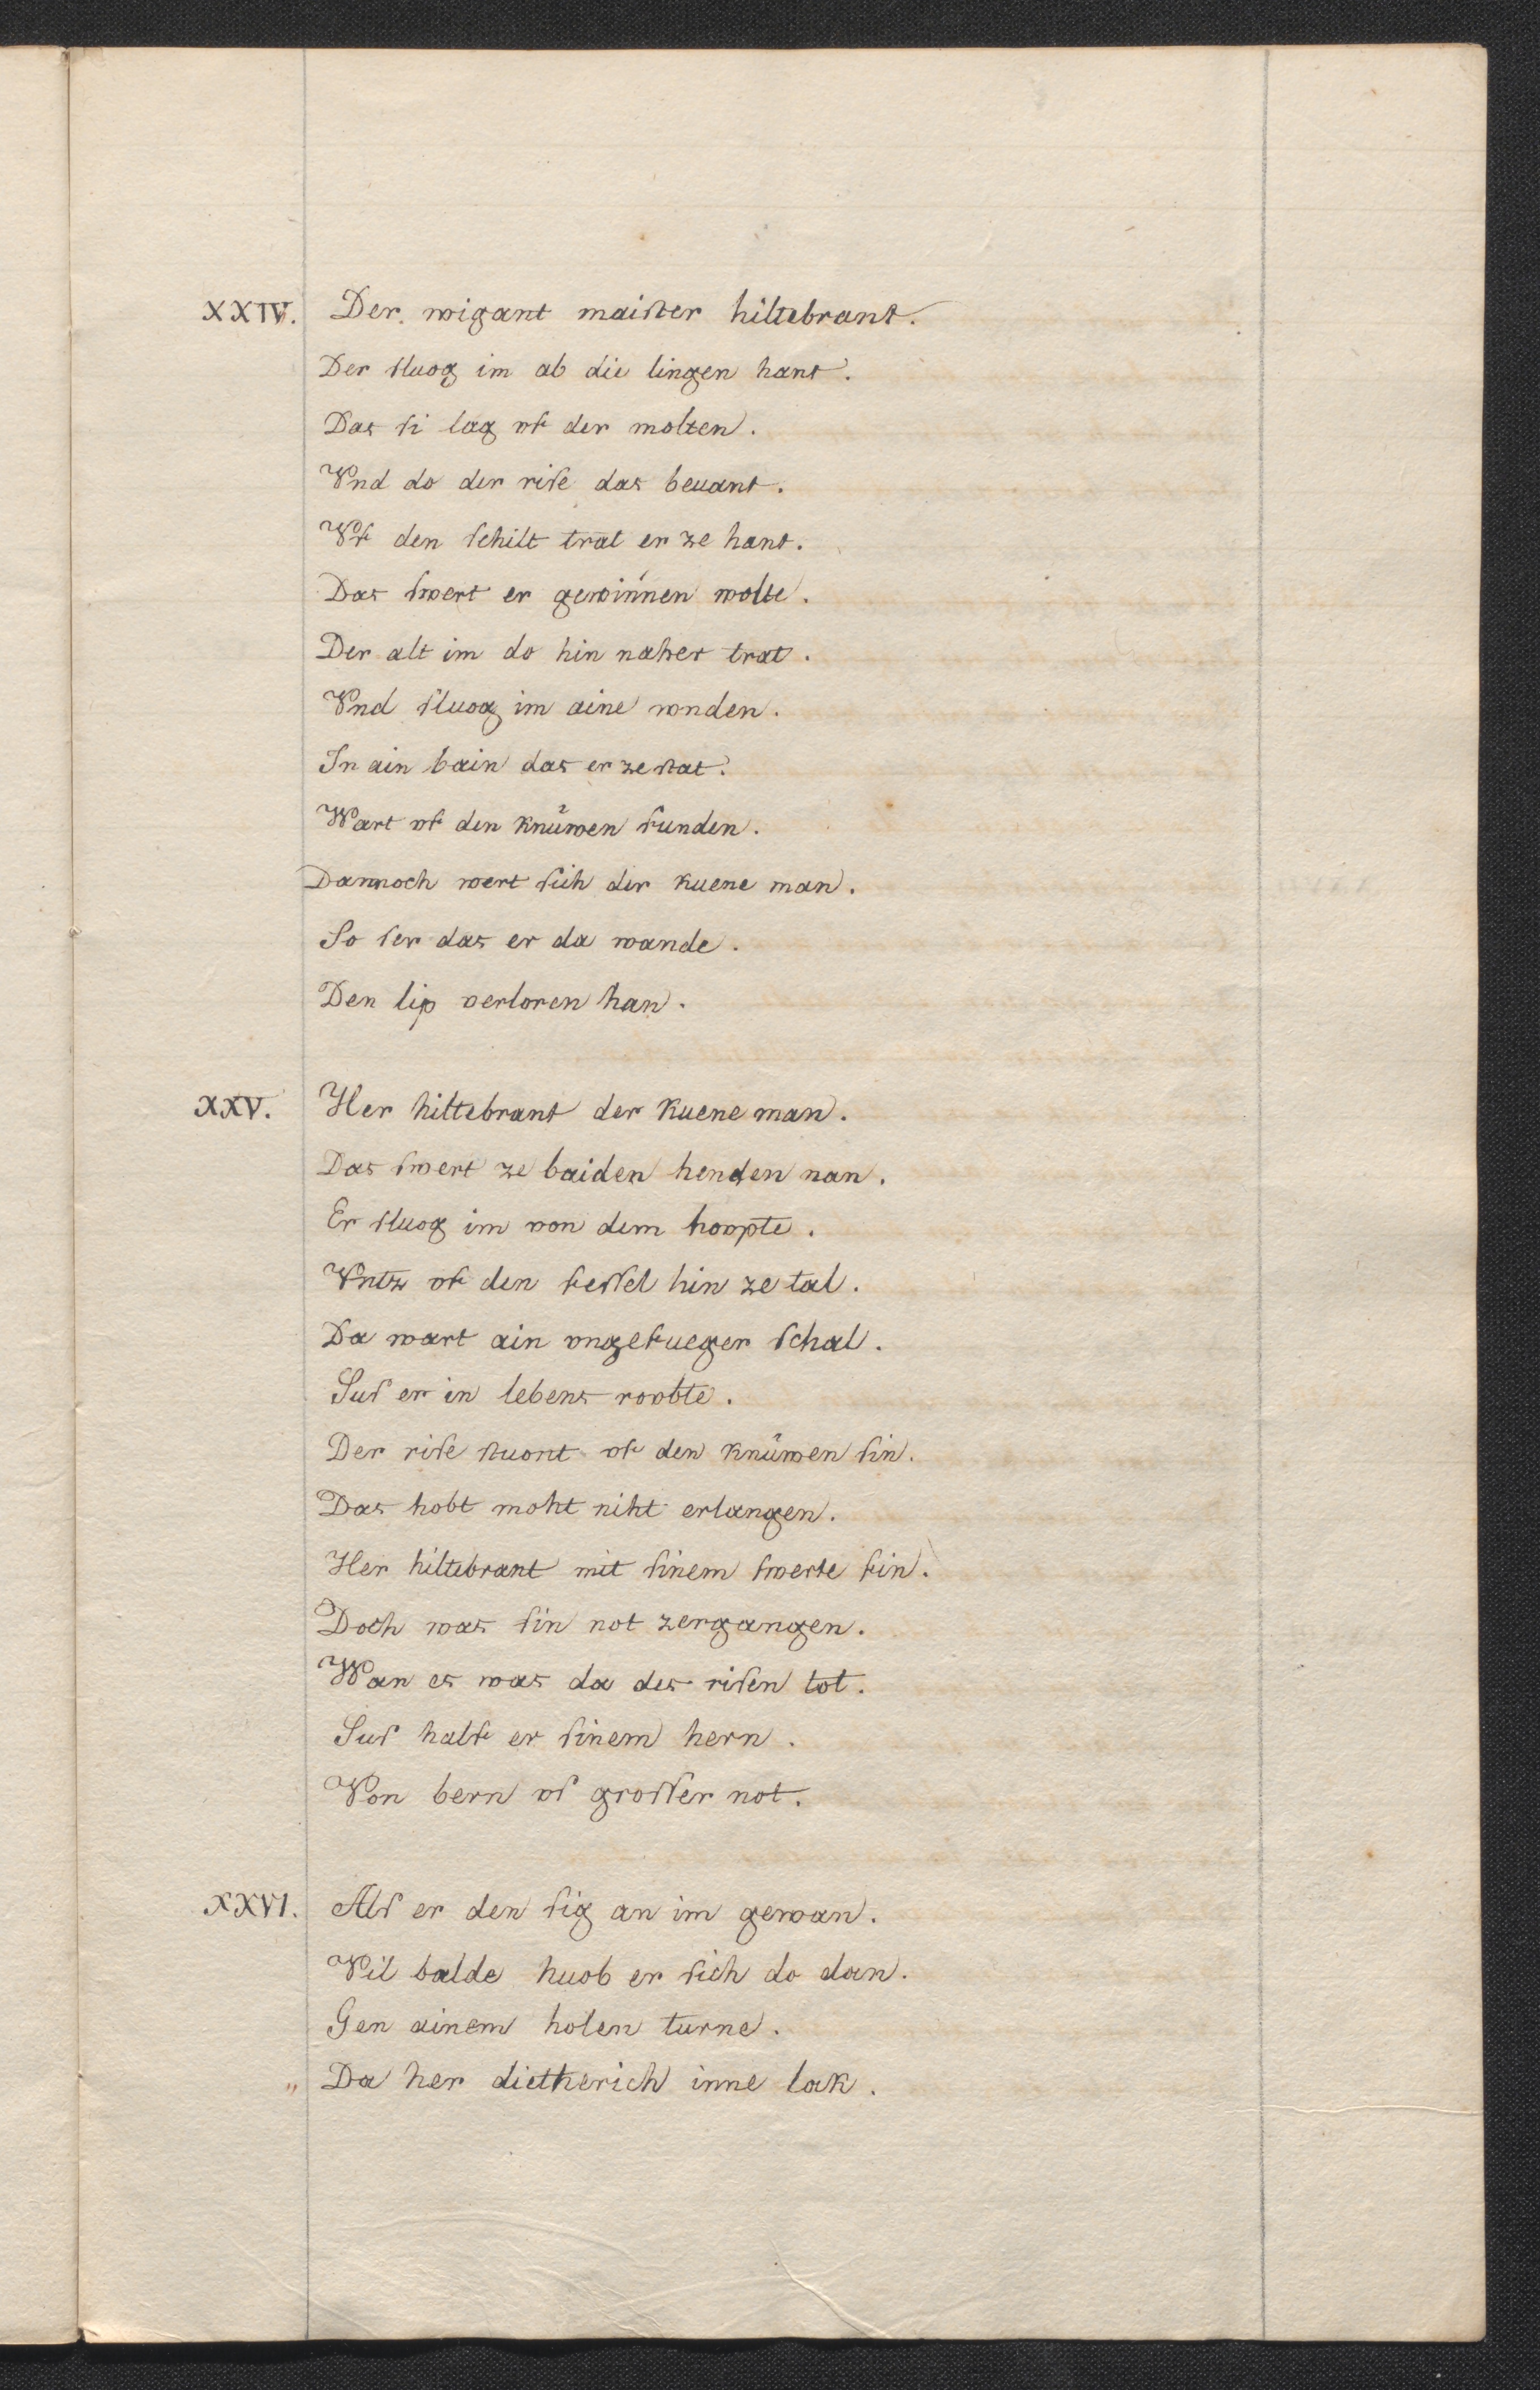 XXIV. Der wigant maiſter hiltebrant.
Der ſluog im ab die lingen hant.
Das ſi lag vf der molten.
Vnd do der riſe das beuant.
Vf den ſchilt trat er ze hant.
Das ſwert er gewinnen wolte.
Der alt im do hin naher trat.
Vnd ſluog im aine wnden.
In ain bain das er ze ſtat.
Wart vf den knüwen funden.
Dannoch wert ſich der kuene man.
So ſer das er da wande.
Den lip verloren han.
XXV. Her hiltebrant der kuene man.
Das ſwert ze baiden henden nan.
Er ſluog im von dem hovpte.
Vntz vf den ſeſſel hin ze tal.
Da wart ain vngefueger ſchal.
Suſ er in lebens rovbte.
Der riſe ſtuont vf den knüwen ſin.
Das hobt moht niht erlangen.
Her hiltebrant mit ſinem ſwerte fin.
Doch was ſin not zergangen.
Wan es was da des riſen tot.
Suſ half er ſinem hern.
Von bern vſ groſſer not.
XXVI. Alſ er den ſig an im gewan.
Vil balde huob er ſich do dan.
Gen ainem holen turne.
„ Da her dietherich inne lak.